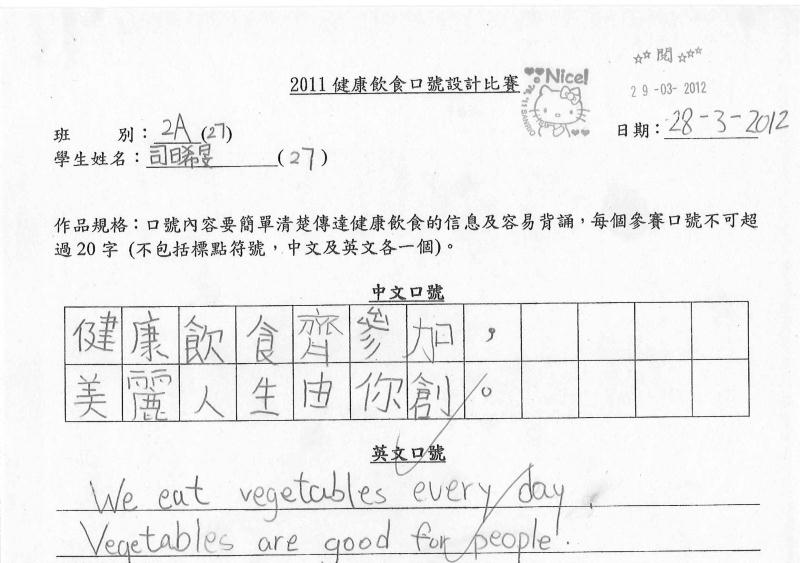 2011 健康飲食口號設計比賽
Nice!
☆☆ 閱 ☆☆☆
29-03-2012
班 別：2A (27)
日期：28-3-2012
學生姓名：司日希旻 (27)
作品規格：口號內容要簡單清楚傳達健康飲食的信息及容易背誦，每個參賽口號不可超
過 20 字 (不包括標點符號，中文及英文各一個)。
中文口號
健康飲食齊參加，
美麗人生由你創。
英文口號
We eat vegetables every day.
Vegetables are good for people.